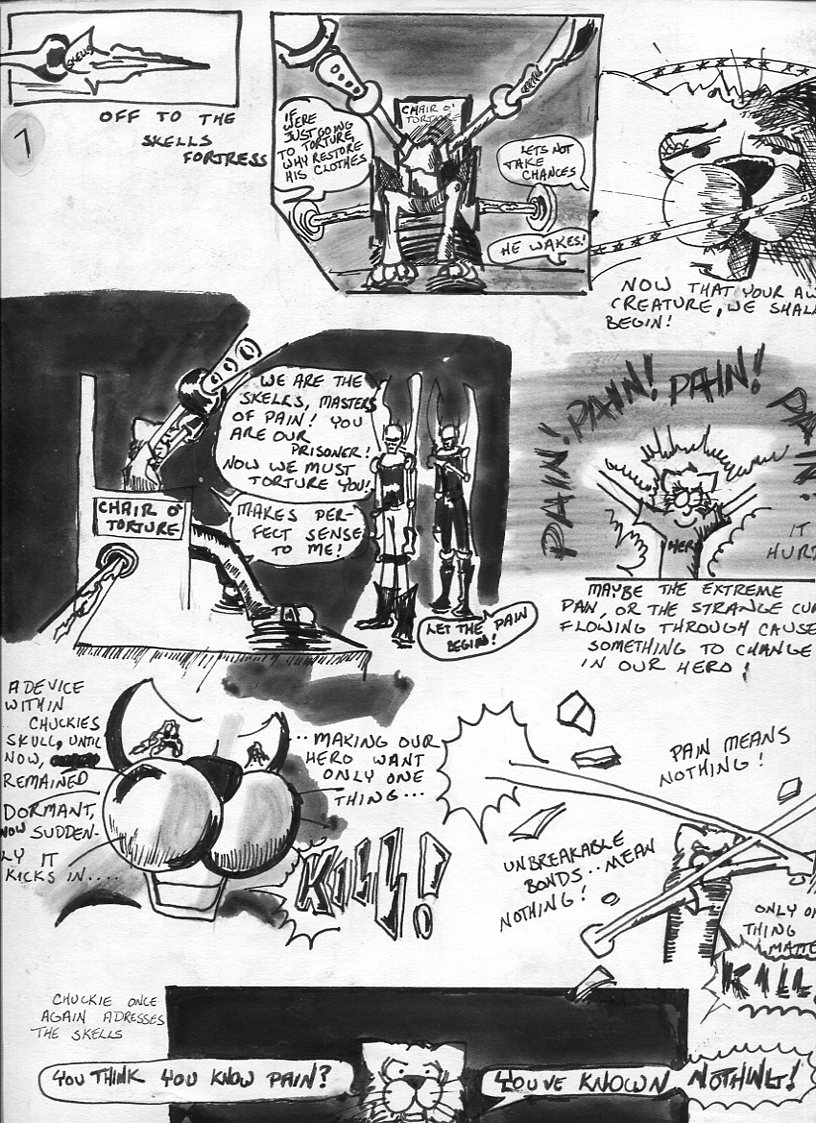 SKELLS
7
OFF TO THE
SKELLS
FORTRESS
IF
WERE
JUST GOING
TO TORTURE,
WHY RESTORE
HIS CLOTHES
CHAIR O'
TORTURE
LETS NOT
TAKE
CHANCES
HE WAKES!
NOW THAT YOUR AW
CREATURE, WE SHAL
BEGIN!
WE ARE THE
SKELLS, MASTERS
OF PAIN! YOU
ARE OUR
PRISONER!
NOW WE MUST
TORTURE YOU!
MAKES PER-
FECT SENSE
TO ME!
CHAIR O'
TORTURE
LET THE PAIN
BEGIN!
PAIN! PAIN! PAIN! PAIN!
HERO
IT
HURT
MAYBE THE EXTREME
PAN, OR THE STRANGE CUR
FLOWING THROUGH CAUSE
SOMETHING TO CHANGE
IN OUR HERO!
A DEVICE
WITHIN
CHUCKIES
SKULL, UNTIL
NOW,
REMAINED
DORMANT,
NOW SUDDEN-
LY IT
KICKS IN....
...MAKING OUR
HERO WANT
ONLY ONE
THING...
KILL!
PAIN MEANS
NOTHING!
UNBREAKABLE
BONDS..MEAN
NOTHING!
ONLY ON
THING
MATTE
KILL
CHUCKIE ONCE
AGAIN ADRESSES
THE SKELLS
YOU THINK YOU KNOW PAIN?
YOUVE KNOWN NOTHING!